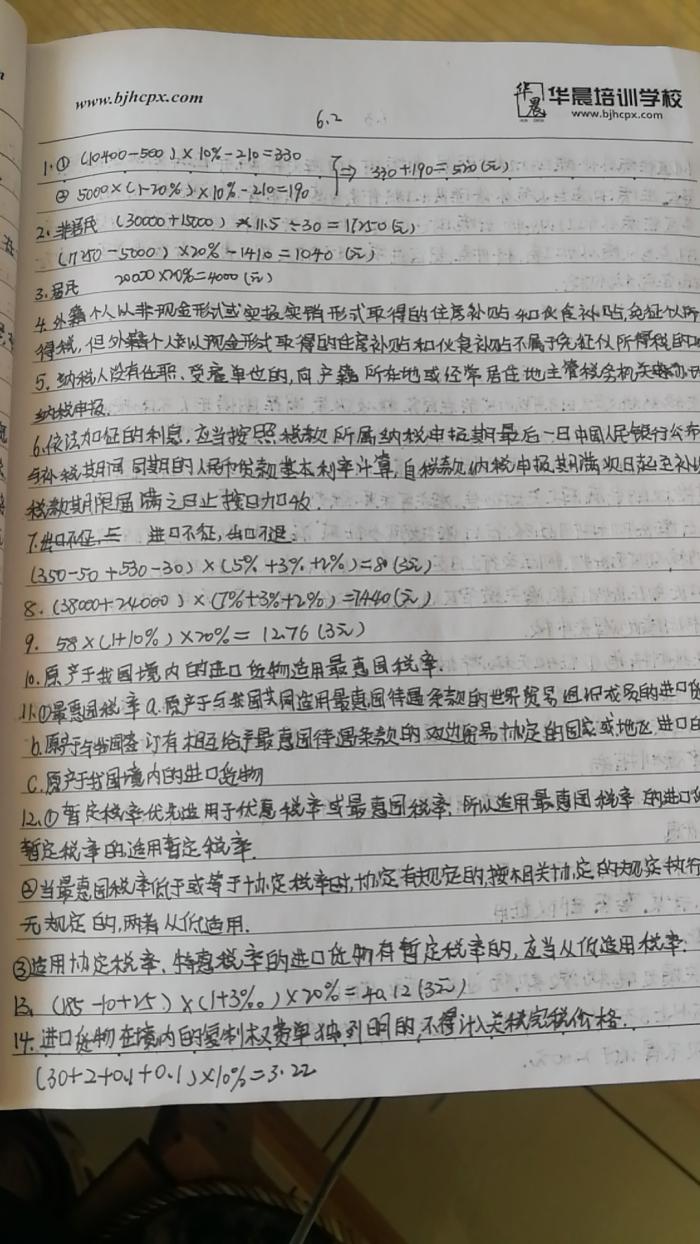 www.bjhcpx.com
华晨
华晨培训学校
www.bjhcpx.com
6.2
1.① (10400-500)×10%-210=330
⇒ 330+190=520(元)
② 5000×(1-20%)×10%-210=190
2. 非居民 (30000+15000)×11.5÷30=17250(元)
(17250-5000)×20%-1410=1040(元)
3.居民 20000×20%=4000(元)
4.外籍个人以非现金形式或实报实销形式取得的住房补贴和伙食补贴,免征个人所
得税,但外籍个人以现金形式取得的住房补贴和伙食补贴不属于免征个人所得税的
5. 纳税人没有任职、受雇单位的,向户籍所在地或经常居住地主管税务机关
纳税申报.
6.依法加征的利息,应当按照税款所属纳税申报期最后一日中国人民银行公布
与补税期间同期的人民币贷款基本利率计算,自税款纳税申报期满次日起至补
税款期限届满之日止按日加收.
7.出口不征, 进口不征,出口不退.
(350-50+530-30)×(5%+3%+2%)=80(万元)
8. (38000+24000)×(7%+3%+2%)=7440(元)
9. 58×(1+10%)×20%=12.76(万元)
10.原产于我国境内的进口货物适用最惠国税率.
11.①最惠国税率 a.原产于与我国共同适用最惠国待遇条款的世界贸易组织成员的进口货
b.原产于与我国签订有相互给予最惠国待遇条款的双边贸易协定的国家或地区进口的
c.原产于我国境内的进口货物
12.①暂定税率优先适用于优惠税率或最惠国税率,所以适用最惠国税率的进口货
暂定税率的适用暂定税率.
②当最惠国税率低于或等于协定税率时,协定有规定的,按相关协定的规定执行
无规定的,两者从低适用.
③适用协定税率、特惠税率的进口货物有暂定税率的,应当从低适用税率.
13. (185-10+25)×(1+3‰)×20%=40.12(万元)
14.进口货物在境内的复制权费单独列明的,不得计入关税完税价格.
(30+2+0.1+0.1)×10%=3.22